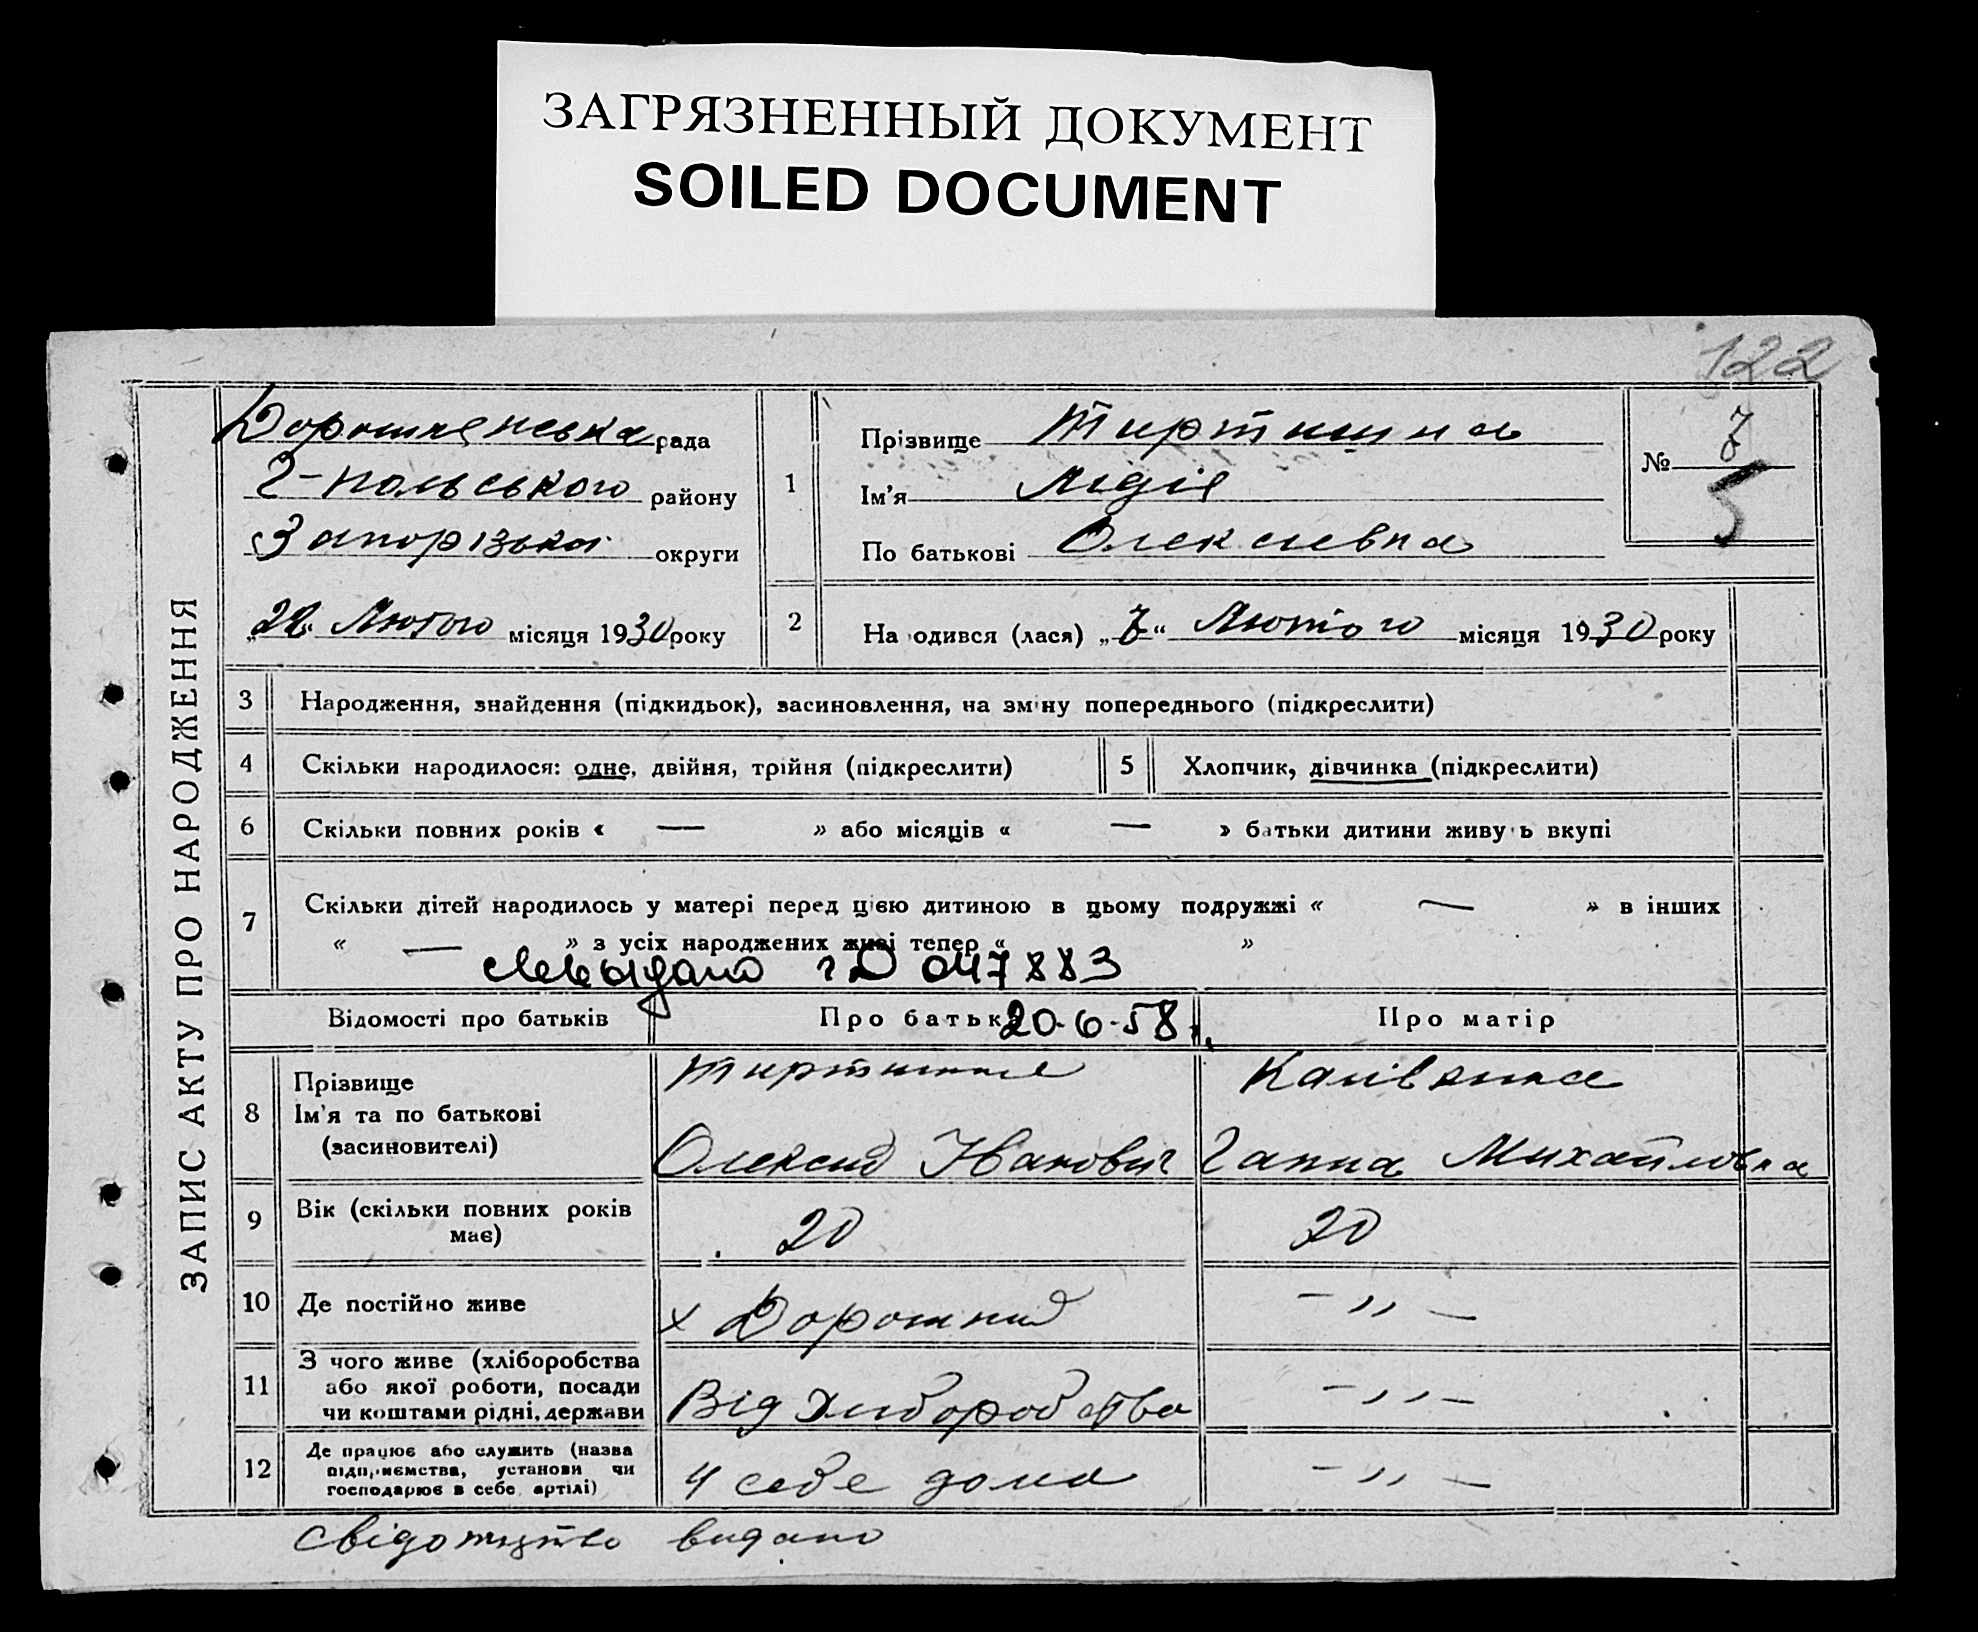 ЗАГРЯЗНЕННЫЙ ДОКУМЕНТ
SOILED DOCUMENT
122
ЗАПИС АКТУ ПРО НАРОДЖЕННЯ
рада
Г-польського району
Запорізької округи
Лютого місяця 1930 року
1
Прізвище
Ім'я Лідія
По батькові Олексіевна
№ 7
5
2 На одився (лася) „7“ Лютого місяця 1930 року
3 Народження, знайдення (підкидьок), засиновлення, на зміну попереднього (підкреслити)
4 Скільки народилося: одне, двійня, трійня (підкреслити)
5 Хлопчик, дівчинка (підкреслити)
6 Скільки повних років « — » або місяців « — » батьки дитини живуть вкупі
7 Скільки дітей народилось у матері перед цією дитиною в цьому подружжі « — » в інших
« — » з усіх народжених живі тепер « »
047883
Відомості про батьків Про батька 20-6-58 г. Про матір
8 Прізвище
Ім'я та по батькові
(засиновителі)
Олексій Иванович Ганна Михайловна
9 Вік (скільки повних років має) 20 20
10 Де постійно живе х Дорошний - " -
11 З чого живе (хліборобства
або якої роботи, посади
чи коштами рідні, держави
Від Хліборобства - " -
12 Де працює або служить (назва
підприємства, установи чи
господарює в себе артілі)
У себе дома - " -
свідоцтво видано